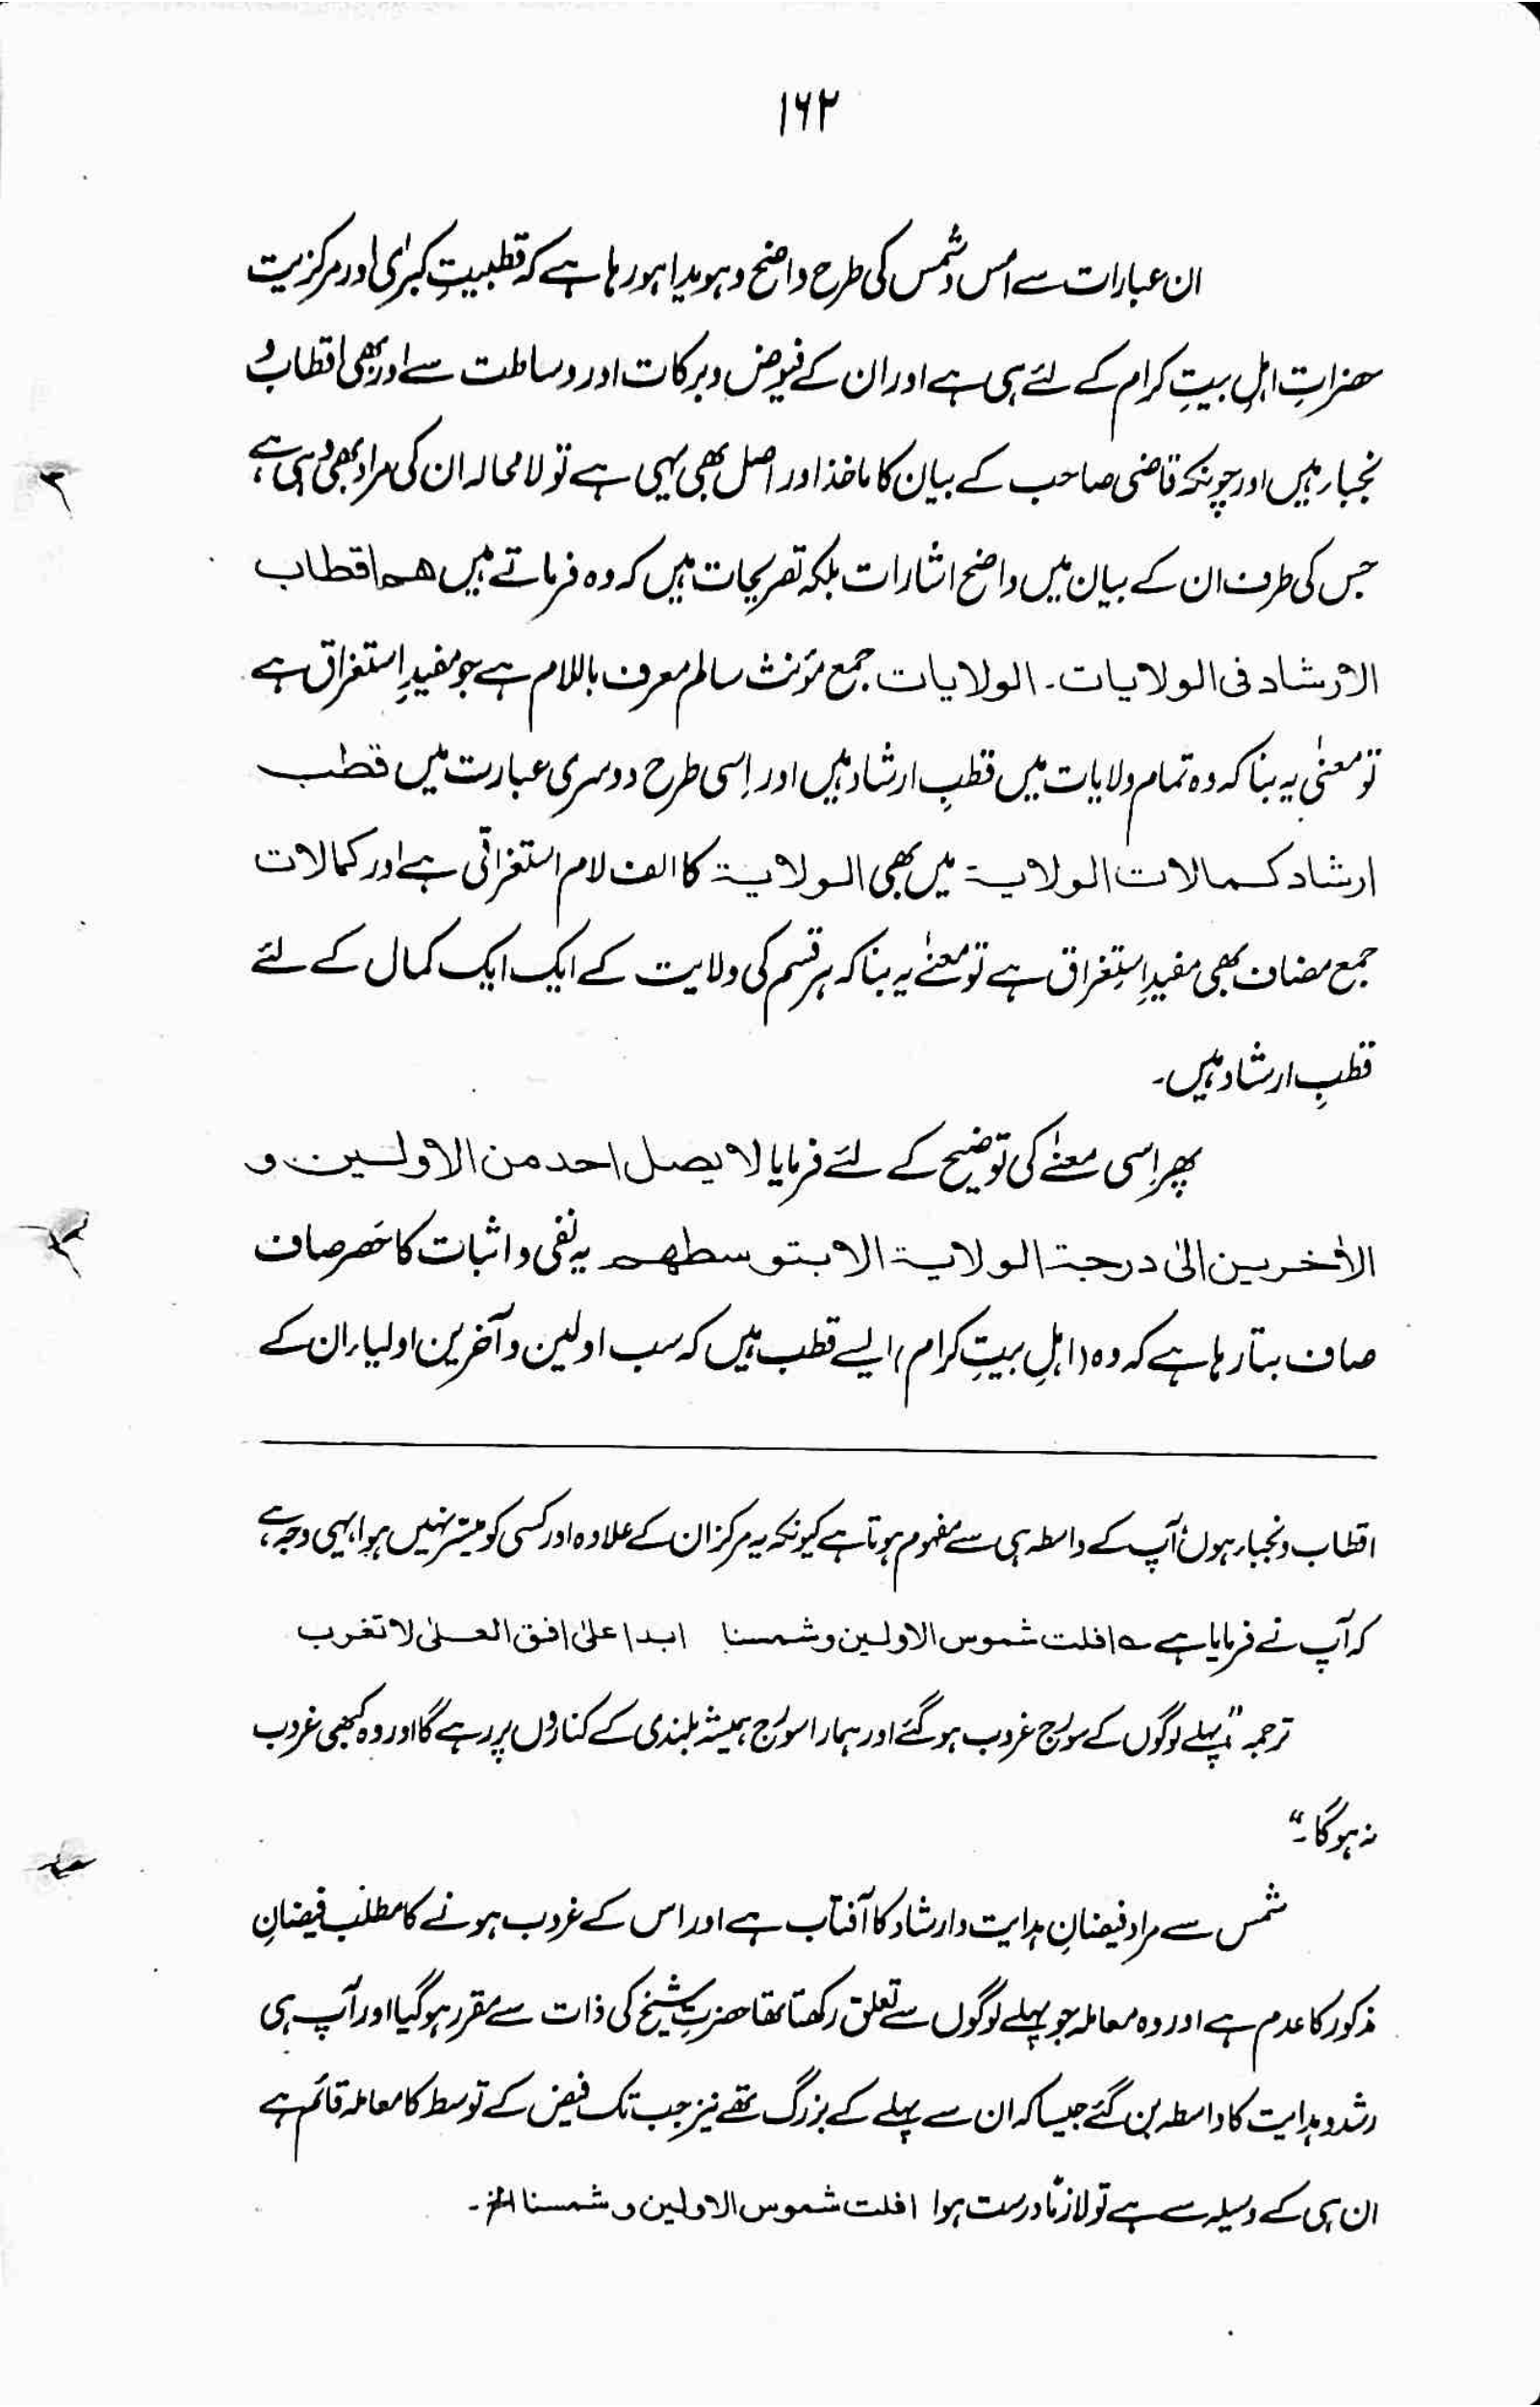 ۱۶۲
ان عبارات سے امس و شمس کی طرح واضح و ہویدا ہو رہا ہے کہ قطبیتِ کبرٰی اور مرکزیت
حضراتِ اہلِ بیتِ کرام کے لئے ہی ہے اور ان کے فیوض و برکات اور وساطت سے اور بھی اقطاب و
نجباء ہیں اور چونکہ قاضی صاحب کے بیان کا ماخذ اور اصل بھی یہی ہے تو لا محالہ ان کی مراد بھی وہی ہے
جس کی طرف ان کے بیان میں واضح اشارات بلکہ تصریحات ہیں کہ وہ فرماتے ہیں ھم اقطاب
الارشاد فی الولایات۔ الولایات جمع مؤنث سالم معرف باللام ہے جو مفیدِ استغراق ہے
تو معنٰی یہ بنا کہ وہ تمام ولایات میں قطبِ ارشاد ہیں اور اِسی طرح دوسری عبارت میں قطب
ارشاد کمالات الولایۃ میں بھی الولایۃ کا الف لام استغراقی ہے اور کمالات
جمع مضاف بھی مفیدِ استِغراق ہے تو معنٰے یہ بنا کہ ہر قسم کی ولایت کے ایک ایک کمال کے لئے
قطبِ ارشاد ہیں۔
پھر اِسی معنٰے کی توضیح کے لئے فرمایا لا یصل احد من الاولین و
الاٰخرین الیٰ درجۃ الولایۃ الا بتوسطھم یہ نفی و اثبات کا حَصر صاف
صاف بتا رہا ہے کہ وہ (اہلِ بیتِ کرام) ایسے قطب ہیں کہ سب اولین و آخرین اولیاء ان کے
اقطاب و نجباء ہوں آپ کے واسطہ ہی سے مفہوم ہوتا ہے کیونکہ یہ مرکز ان کے علاوہ اور کسی کو میسّر نہیں ہوا، یہی وجہ ہے
کہ آپ نے فرمایا ہے ؎ افلت شموس الاولین وشمسنا ابدا علیٰ افق العلیٰ لا تغرب
ترجمہ "پہلے لوگوں کے سورج غروب ہو گئے اور ہمارا سورج ہمیشہ بلندی کے کناروں پر رہے گا اور وہ کبھی غروب
نہ ہو گا۔"
شمس سے مراد فیضانِ ہدایت و ارشاد کا آفتاب ہے اور اس کے غروب ہونے کا مطلب فیضانِ
مذکور کا عدم ہے اور وہ معاملہ جو پہلے لوگوں سے تعلق رکھتا تھا حضرتِ شیخ کی ذات سے مقرر ہو گیا اور آپ ہی
رشد و ہدایت کا واسطہ بن گئے جیسا کہ ان سے پہلے کے بزرگ تھے نیز جب تک فیض کے توسط کا معاملہ قائم ہے
ان ہی کے وسیلہ سے ہے تو لازمًا درست ہوا افلت شموس الاولین وشمسنا الخ۔